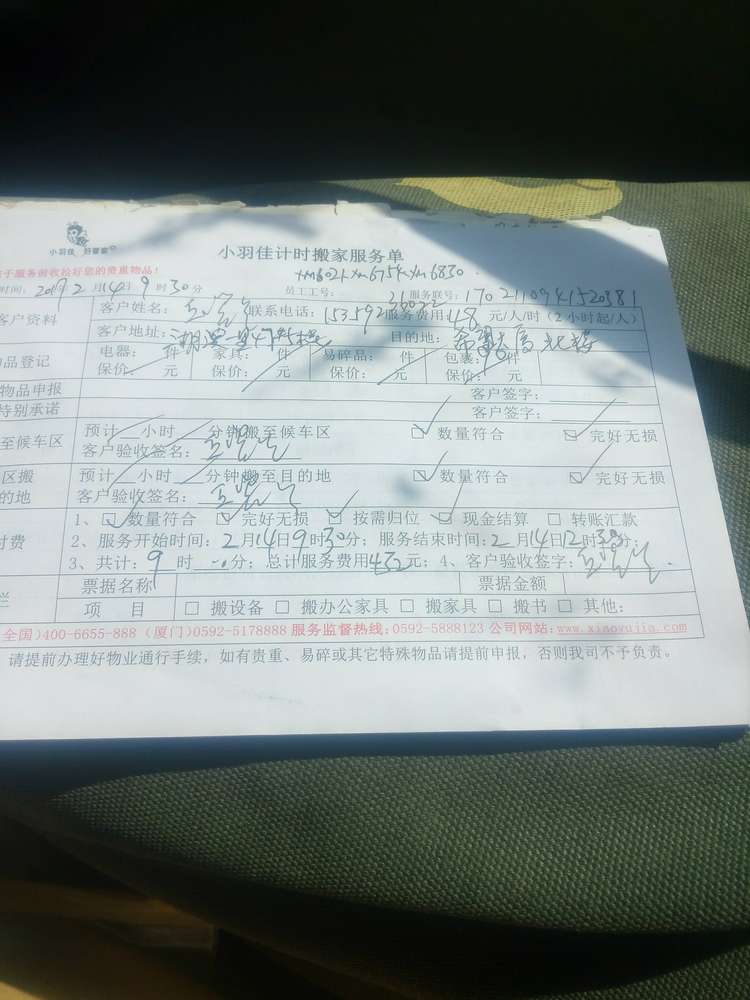 小羽佳 好管家
小羽佳计时搬家服务单
于服务前收拾好您的贵重物品!
xm6021 xm6754 xm6830
时间: 2017 2月14日9时30分 员工工号: 服务联号: 17021109941520381
客户资料 客户姓名: 联系电话: 15359226022 服务费用48元/人/时(2小时起/人)
客户地址: 目的地: 希望大厦北楼
品登记 电器: 件 家具: 件 易碎品: 件 包裹: 件
保价: 元 保价: 元 保价: 元 保价: 元
物品申报 客户签字:
特别承诺 客户签字:
至候车区 预计 小时 分钟搬至候车区 数量符合 完好无损
客户验收签名:
区搬 预计 小时 分钟搬至目的地 数量符合 完好无损
的地 客户验收签名:
1、 数量符合 完好无损 按需归位 现金结算 转账汇款
付费 2、服务开始时间: 2月14日9时30分; 服务结束时间: 2月14日12时30分;
3、共计: 9时 分; 总计服务费用432元; 4、客户验收签字:
栏 票据名称 票据金额
项 目 搬设备 搬办公家具 搬家具 搬书 其他:
全国)400-6655-888 (厦门)0592-5178888 服务监督热线: 0592-5888123 公司网站: www.xiaoyujia.com
请提前办理好物业通行手续,如有贵重、易碎或其它特殊物品请提前申报,否则我司不予负责。